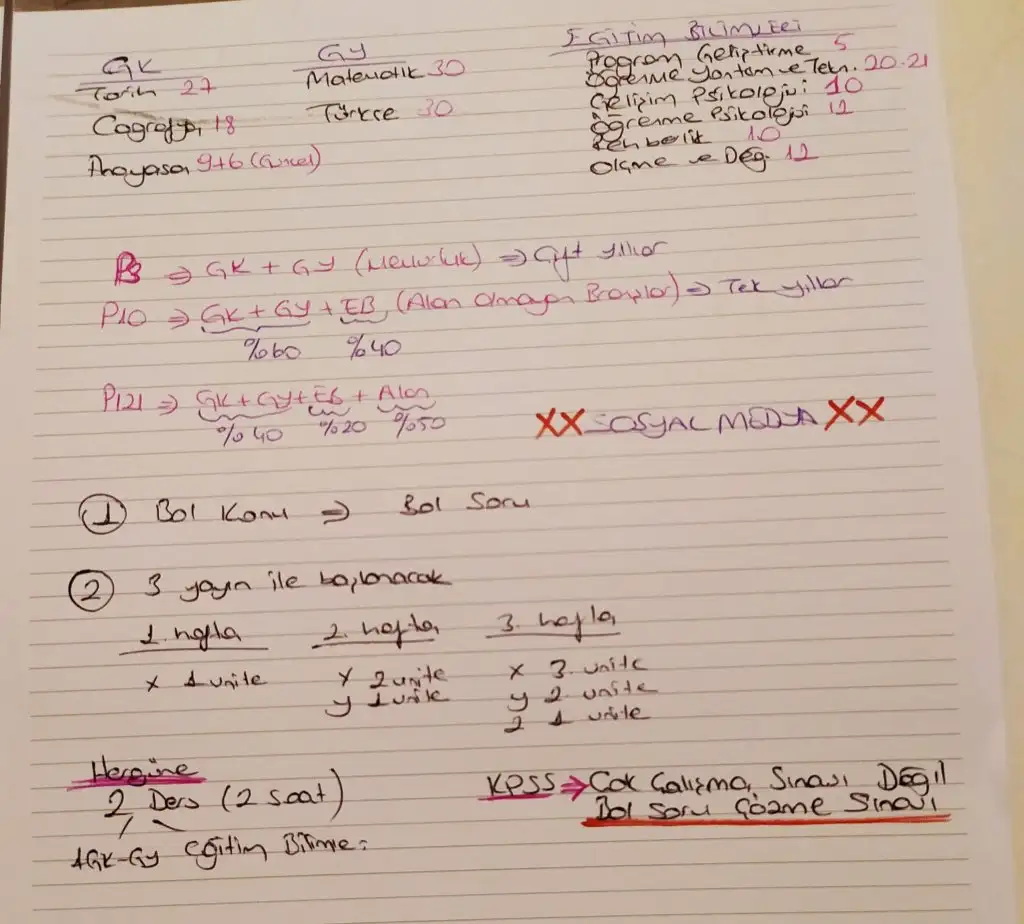 GK
Tarih 27
Coğrafya 18
Anayasa 9+6 (Güncel)
GY
Matematik 30
Türkçe 30
EĞİTİM BİLİMLERİ
Program Geliştirme 5
Öğrenme Yöntem ve Tekn. 20-21
Gelişim Psikolojisi 10
Öğrenme Psikolojisi 12
Rehberlik 10
Ölçme ve Değ. 12
P3 ⇒ GK + GY (Memurluk) ⇒ Çift yıllar
P10 ⇒ GK + GY + EB (Alan Olmayan Branşlar) ⇒ Tek yıllar
%60 %40
P121 ⇒ GK + GY + EB + Alan
%40 %20 %50
XX SOSYAL MEDYA XX
1 Bol Konu ⇒ Bol Soru
2 3 yayın ile başlanacak
1. hafta 2. hafta 3. hafta
x 1 ünite x 2 ünite x 3. ünite
y 1 ünite y 2. ünite
z 1 ünite
Hergüne
2 Ders (2 saat)
1GK-GY Eğitim Bilimle
KPSS ⇒ Çok Çalışma, Sınavı Değil
Bol Soru Çözme Sınavı